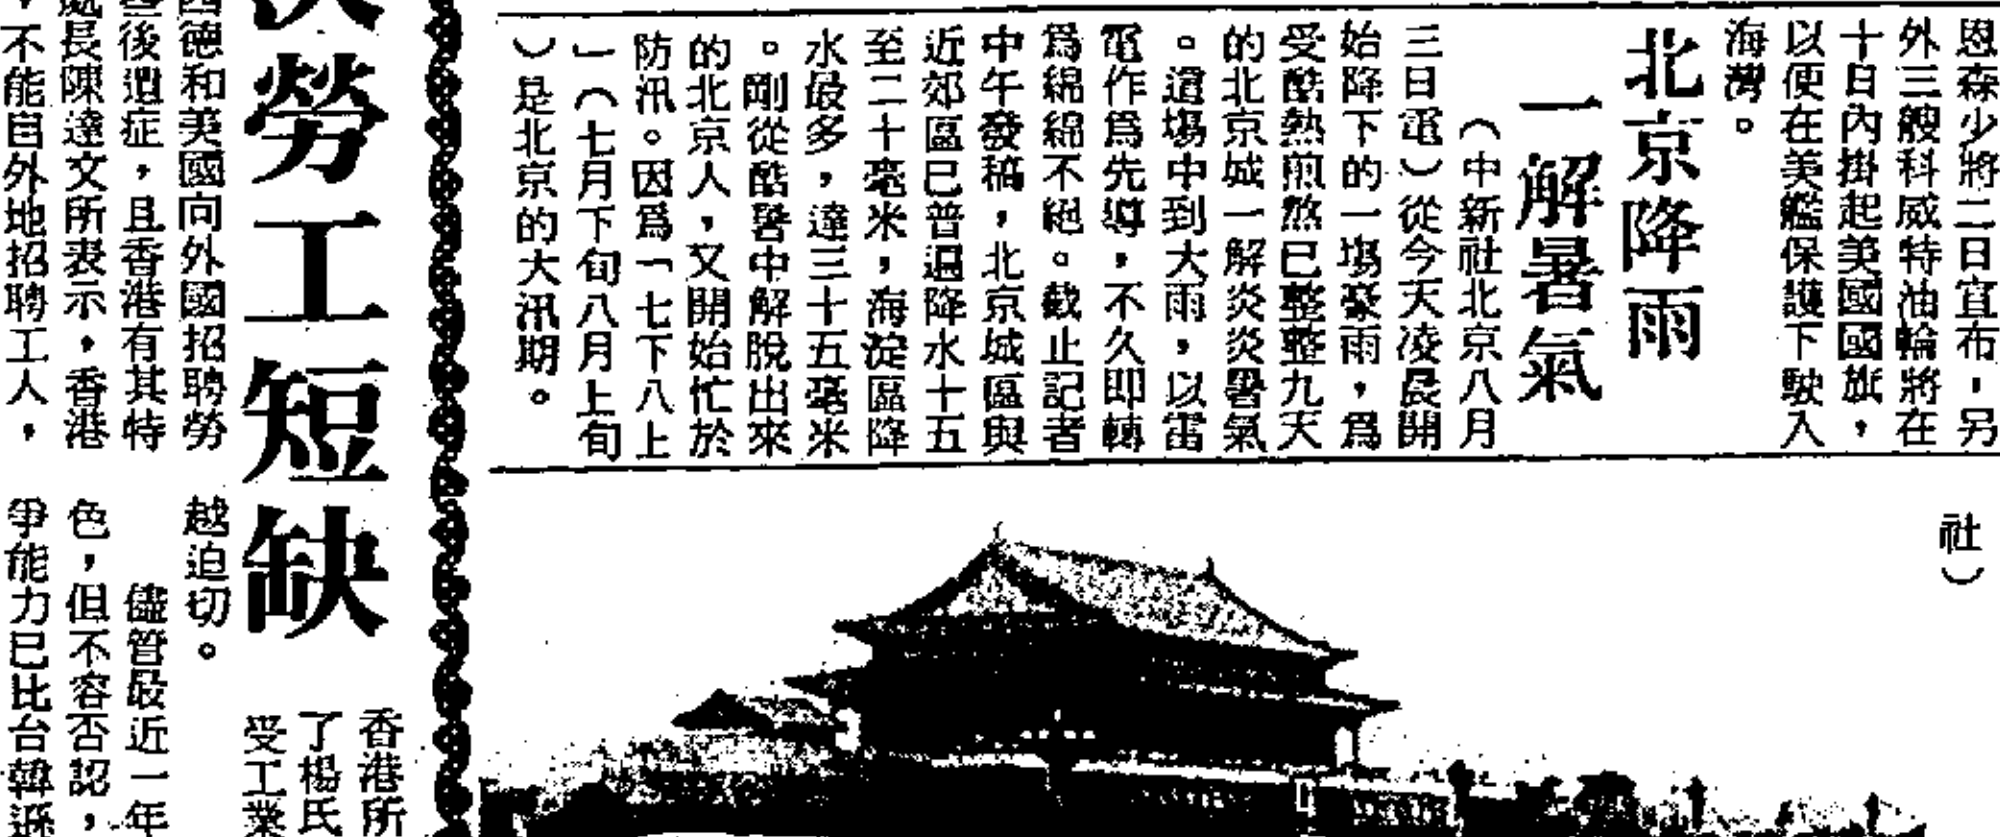 恩森少將二日宣布，另
外三艘科威特油輪將在
十日內掛起美國國旗，
以便在美艦保護下駛入
海灣。
北京降雨
一解暑氣
（中新社北京八月
三日電）從今天凌晨開
始降下的一場豪雨，爲
受酷熱煎熬已整整九天
的北京城一解炎炎暑氣
。這場中到大雨，以雷
電作爲先導，不久即轉
爲綿綿不絕。截止記者
中午發稿，北京城區與
近郊區已普遍降水十五
至二十毫米，海淀區降
水最多，達三十五毫米
。剛從酷暑中解脫出來
的北京人，又開始忙於
防汛。因爲「七下八上
」（七月下旬八月上旬
）是北京的大汛期。
社）
勞工短缺
西德和美國向外國招聘勞
後遺症，且香港有其特
處長陳達文所表示，香港
，不能自外地招聘工人，
越迫切。
儘管最近一年
色，但不容否認，
爭能力已比台韓遜
香港所
了楊氏
受工業